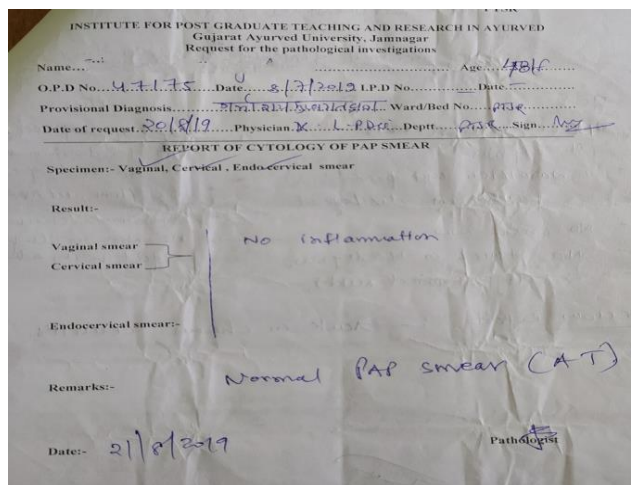 INSTITUTE FOR POST GRADUATE TEACHING AND RESEARCH IN AYURVED
Gujarat Ayurved University, Jamnagar
Request for the pathological investigations
Name... Age 48/F
O.P.D No. 47175 Date 8/7/2019 I.P.D No. Date
Provisional Diagnosis Ward/Bed No. PTSR
Date of request 20/8/19 Physician Deptt. PTSR Sign.
REPORT OF CYTOLOGY OF PAP SMEAR
Specimen:- Vaginal, Cervical , Endocervical smear
Result:-
Vaginal smear
No inflammation
Cervical smear
Endocervical smear:-
Remarks:- Normal PAP smear (AT)
Date:- 21/8/2019 Pathologist